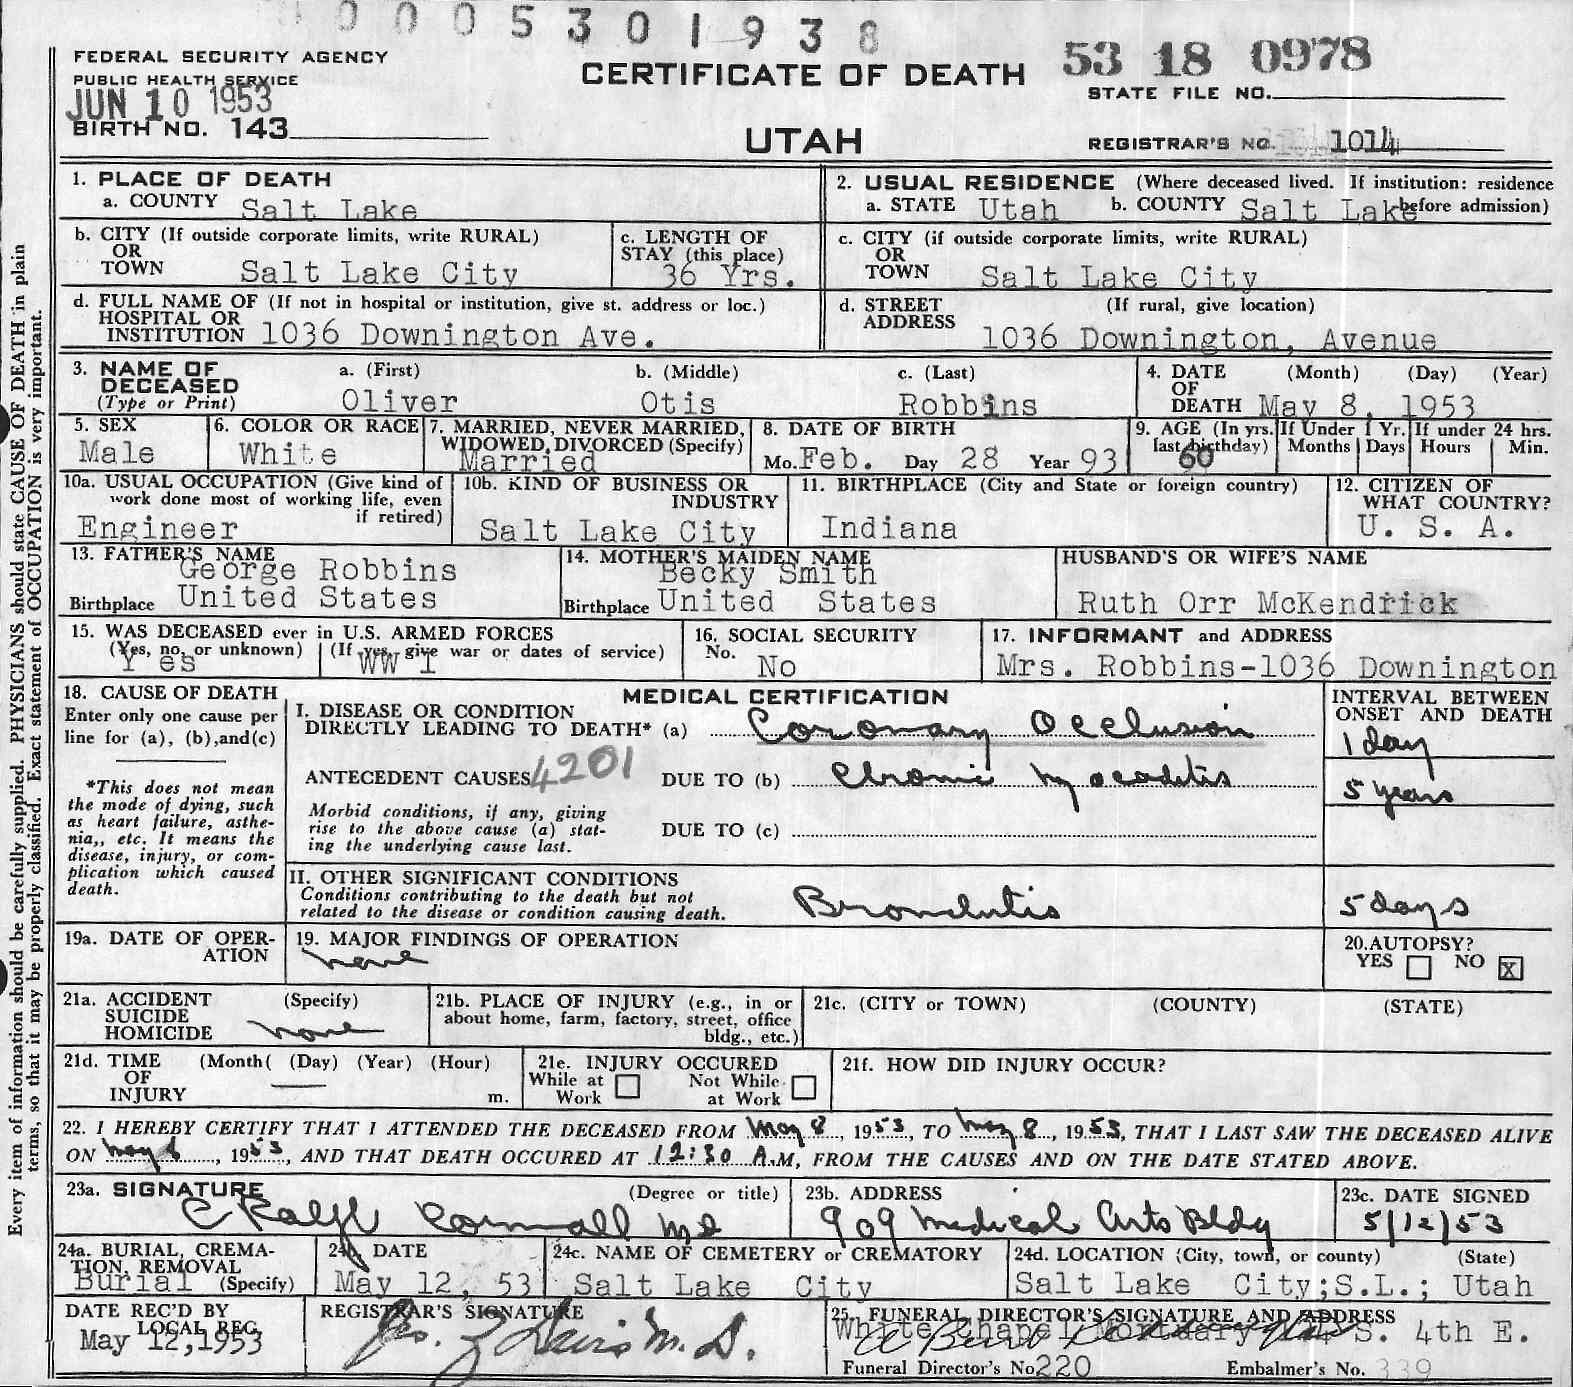 0005301938
FEDERAL SECURITY AGENCY
PUBLIC HEALTH SERVICE
JUN 10 1953
BIRTH NO. 143
CERTIFICATE OF DEATH
UTAH
53 18 0978
STATE FILE NO.
REGISTRAR'S NO. 1014
Every item of information should be carefully supplied. PHYSICIANS should state CAUSE OF DEATH in plain
terms, so that it may be properly classified. Exact statement of OCCUPATION is very important.
1. PLACE OF DEATH
a. COUNTY Salt Lake
2. USUAL RESIDENCE (Where deceased lived. If institution: residence
a. STATE Utah b. COUNTY Salt Lake before admission)
b. CITY (If outside corporate limits, write RURAL)
OR
TOWN Salt Lake City
c. LENGTH OF
STAY (this place)
36 Yrs.
c. CITY (if outside corporate limits, write RURAL)
OR
TOWN Salt Lake City
d. FULL NAME OF (If not in hospital or institution, give st. address or loc.)
HOSPITAL OR
INSTITUTION 1036 Downington Ave.
d. STREET (If rural, give location)
ADDRESS 1036 Downington, Avenue
3. NAME OF
DECEASED
(Type or Print)
a. (First) b. (Middle) c. (Last)
Oliver Otis Robbins
4. DATE (Month) (Day) (Year)
OF
DEATH May 8, 1953
5. SEX
Male
6. COLOR OR RACE
White
7. MARRIED, NEVER MARRIED,
WIDOWED, DIVORCED (Specify)
Married
8. DATE OF BIRTH
Mo. Feb. Day 28 Year 93
9. AGE (In yrs.
last birthday)
60
If Under 1 Yr.
Months Days
If under 24 hrs.
Hours Min.
10a. USUAL OCCUPATION (Give kind of
work done most of working life, even
if retired)
Engineer
10b. KIND OF BUSINESS OR
INDUSTRY
Salt Lake City
11. BIRTHPLACE (City and State or foreign country)
Indiana
12. CITIZEN OF
WHAT COUNTRY?
U. S. A.
13. FATHER'S NAME
George Robbins
Birthplace United States
14. MOTHER'S MAIDEN NAME
Becky Smith
Birthplace United States
HUSBAND'S OR WIFE'S NAME
Ruth Orr McKendrick
15. WAS DECEASED ever in U.S. ARMED FORCES
(Yes, no, or unknown) (If yes, give war or dates of service)
Yes WW I
16. SOCIAL SECURITY
No.
No
17. INFORMANT and ADDRESS
Mrs. Robbins-1036 Downington
18. CAUSE OF DEATH
Enter only one cause per
line for (a), (b), and (c)
*This does not mean
the mode of dying, such
as heart failure, asthe-
nia,, etc. It means the
disease, injury, or com-
plication which caused
death.
MEDICAL CERTIFICATION
I. DISEASE OR CONDITION
DIRECTLY LEADING TO DEATH* (a) Coronary Occlusion
ANTECEDENT CAUSES 4201 DUE TO (b) Chronic Myocaditis
Morbid conditions, if any, giving
rise to the above cause (a) stat-
ing the underlying cause last.
DUE TO (c)
INTERVAL BETWEEN
ONSET AND DEATH
1 day
5 years
II. OTHER SIGNIFICANT CONDITIONS
Conditions contributing to the death but not
related to the disease or condition causing death.
Bronchitis
5 days
19a. DATE OF OPER-
ATION
19. MAJOR FINDINGS OF OPERATION
none
20. AUTOPSY?
YES NO X
21a. ACCIDENT (Specify)
SUICIDE
HOMICIDE none
21b. PLACE OF INJURY (e.g., in or
about home, farm, factory, street, office
bldg., etc.)
21c. (CITY or TOWN) (COUNTY) (STATE)
21d. TIME (Month( (Day) (Year) (Hour)
OF
INJURY m.
21e. INJURY OCCURED
While at Work Not While at Work
21f. HOW DID INJURY OCCUR?
22. I HEREBY CERTIFY THAT I ATTENDED THE DECEASED FROM May 8, 1953, TO May 8, 1953, THAT I LAST SAW THE DECEASED ALIVE
ON May 8, 1953, AND THAT DEATH OCCURED AT 12:30 A.M, FROM THE CAUSES AND ON THE DATE STATED ABOVE.
23a. SIGNATURE (Degree or title)
C Ralph Cornwall MD
23b. ADDRESS
909 Medical Arts Bldg
23c. DATE SIGNED
5/12/53
24a. BURIAL, CREMA-
TION, REMOVAL
Burial (Specify)
24b. DATE
May 12, 53
24c. NAME OF CEMETERY or CREMATORY
Salt Lake City
24d. LOCATION (City, town, or county) (State)
Salt Lake City;S.L.; Utah
DATE REC'D BY
LOCAL REG.
May 12, 1953
REGISTRAR'S SIGNATURE
Davis M. D.
25. FUNERAL DIRECTOR'S SIGNATURE AND ADDRESS
White Chapel Mortuary S. 4th E.
Funeral Director's No 220 Embalmer's No. 339